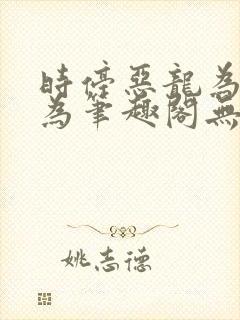 時停惡龍為
為筆趣閣無
姚志德